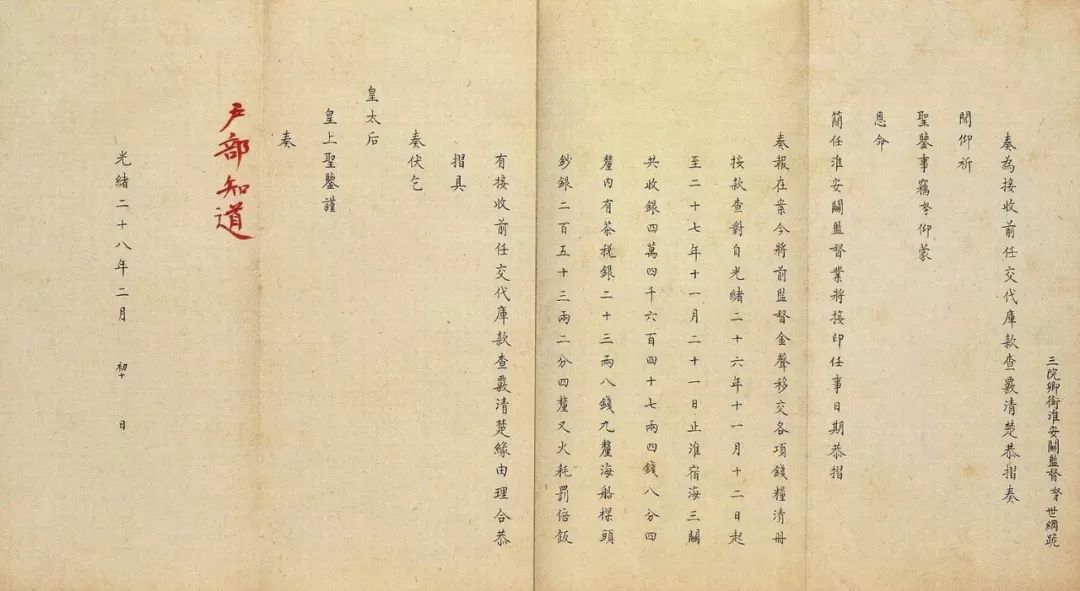 三院卿銜淮安關監督奴世綱跪
奏為接收前任交代庫款查覈清楚恭摺奏
聞仰祈
聖鑒事竊奴仰蒙
恩命
簡任淮安關監督業將接印任事日期恭摺
奏報在案今將前監督金聲移交各項錢糧清冊
按款查對自光緒二十六年十一月十二日起
至二十七年十一月二十一日止淮宿海三關
共收銀四萬四千六百四十七兩四錢八分四
釐內有茶稅銀二十三兩八錢九釐海船樑頭
鈔銀二百五十三兩二分四釐又火耗罰倍飯
有接收前任交代庫款查覈清楚緣由理合恭
摺具
奏伏乞
皇太后
皇上聖鑒謹
奏
戶部知道
光緒二十八年二月 初十 日